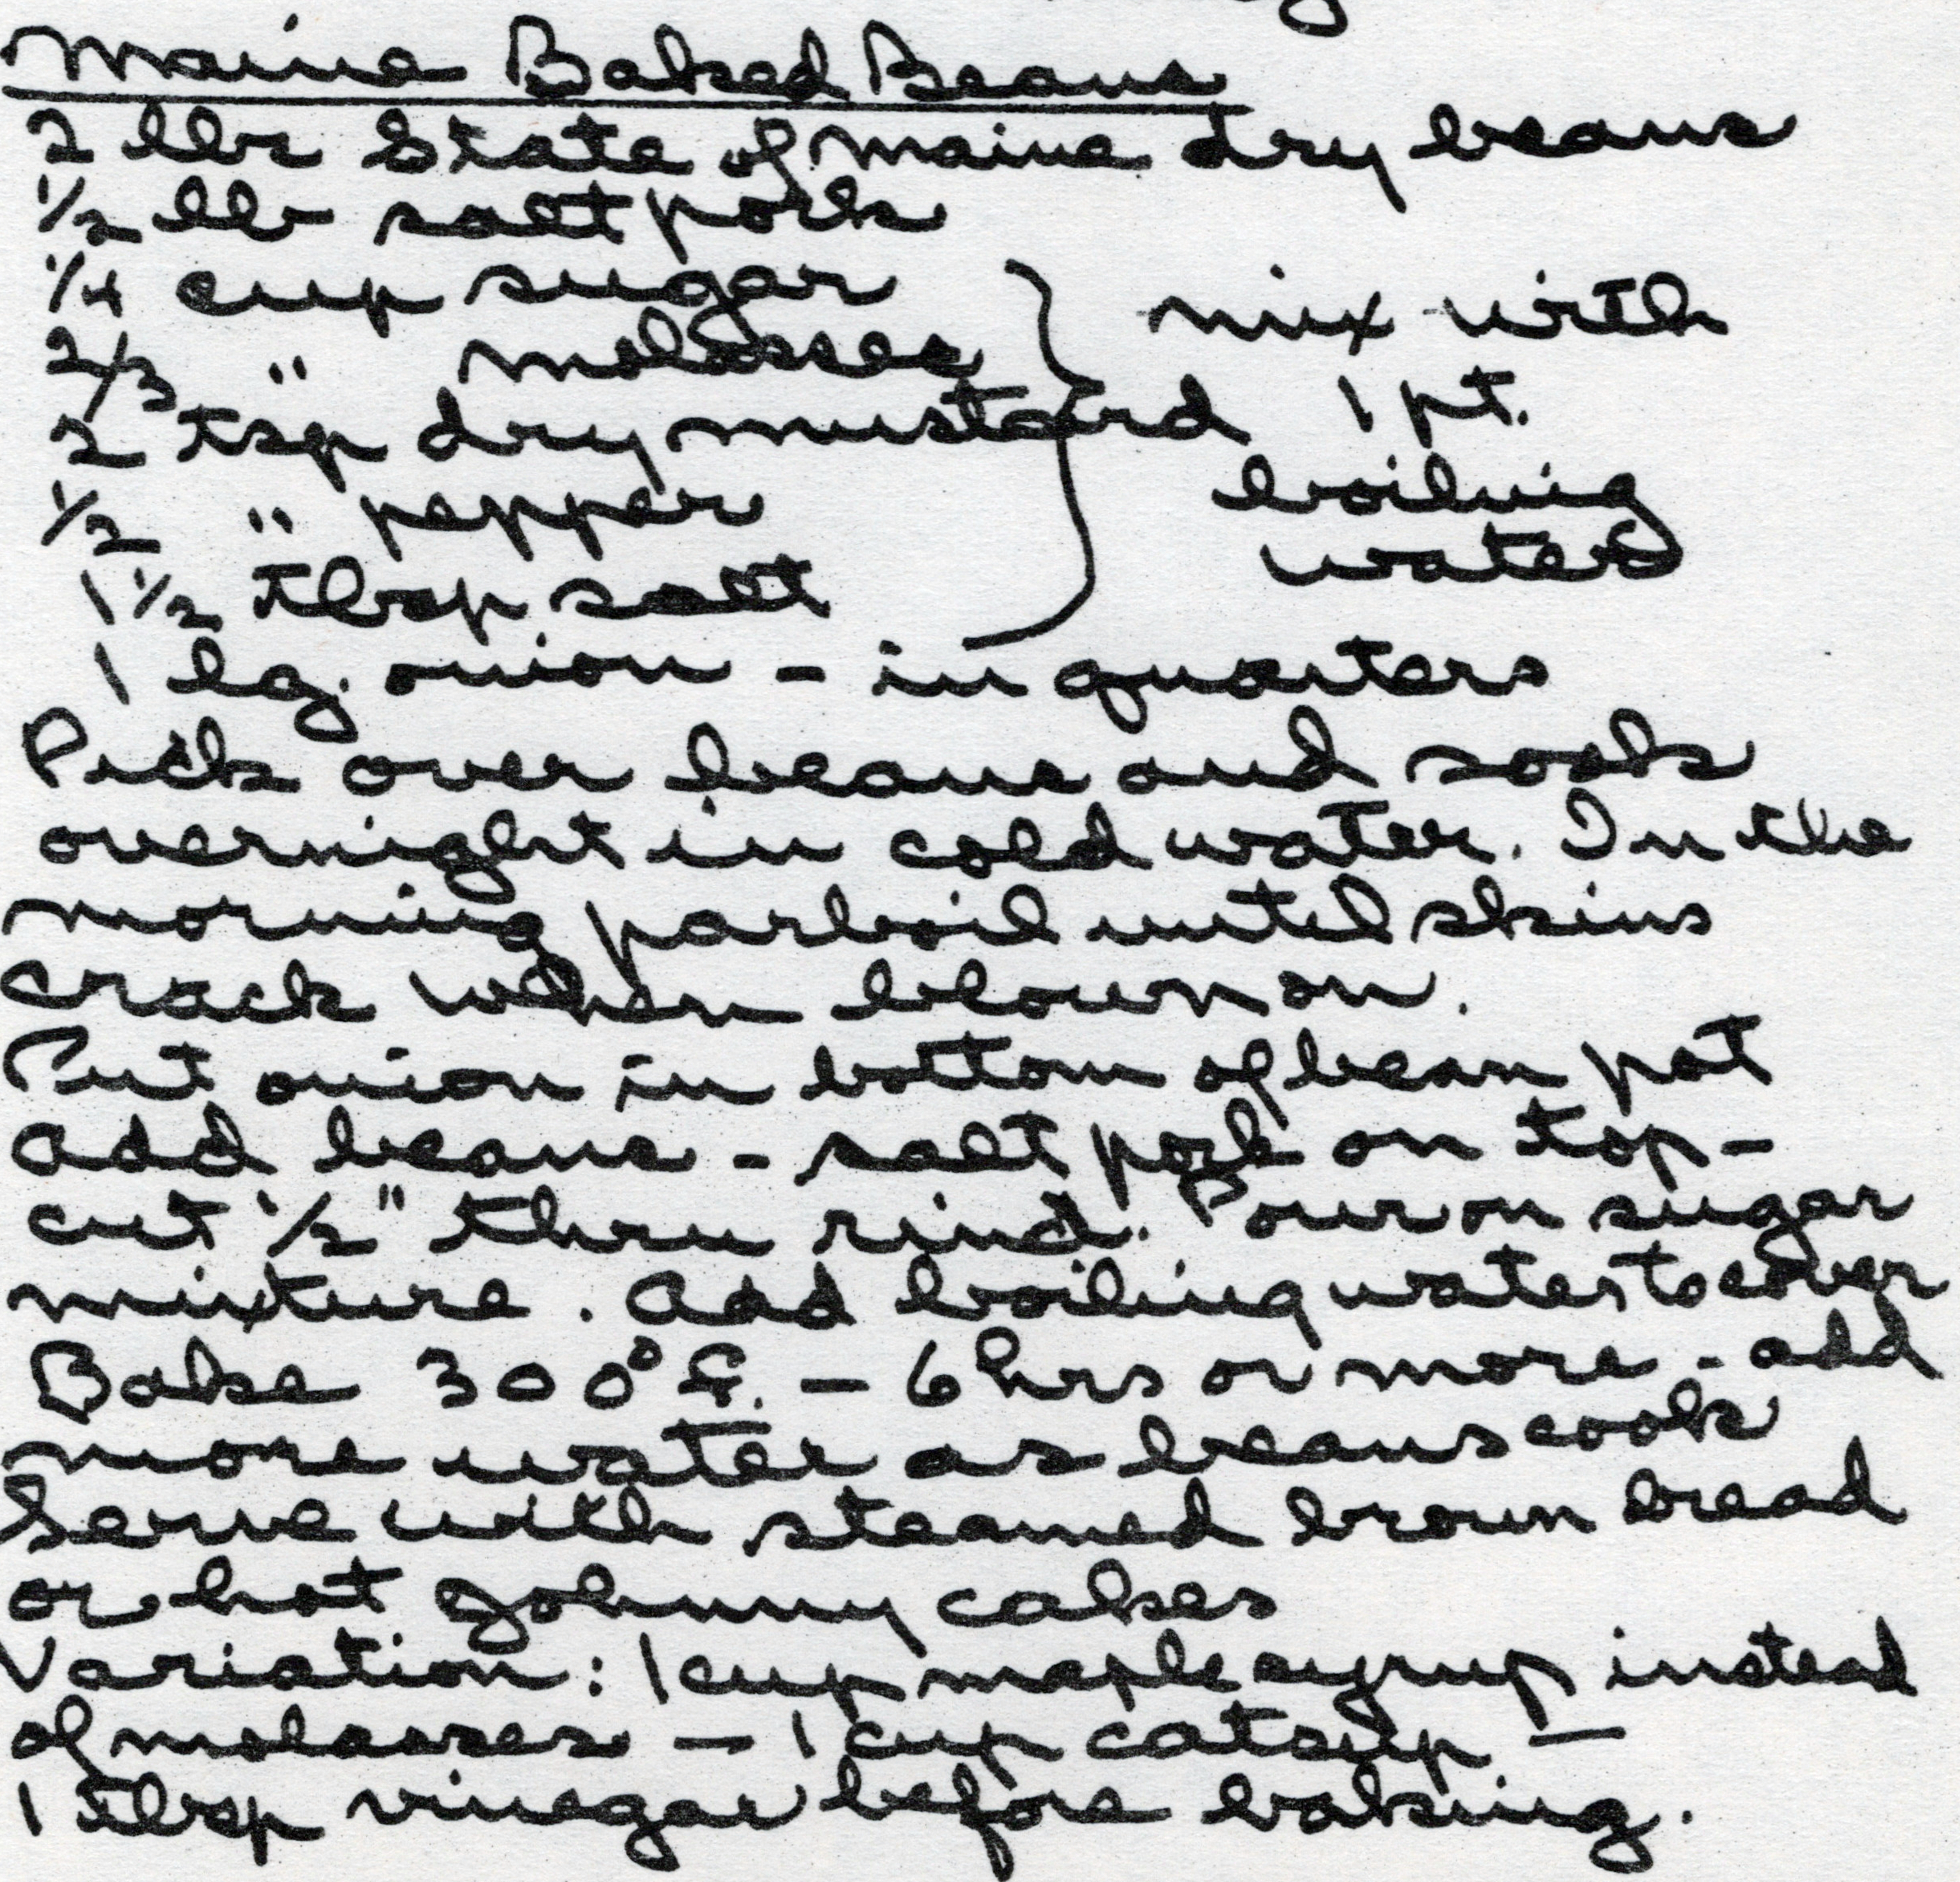 Maine Baked Beans
2 lbs State of Maine dry beans
1/2 lb salt pork
1/4 cup sugar } mix with
2/3 " molasses
2 tsp dry mustard 1 pt.
1/2 " pepper boiling
1 1/2 tbsp salt water
1 lg. onion - in quarters
Pick over beans and soak
overnight in cold water. In the
morning parboil until skins
crack when blown on.
Put onion in bottom of bean pot
add beans - salt pork on top -
cut 1/2" thru rind. Pour on sugar
mixture. Add boiling water to cover
Bake 300° F. - 6 hrs or more - add
more water as beans cook
Serve with steamed brown bread
or hot Johnny cakes
Variation: 1 cup maple syrup instead
of molasses - 1 cup catsup -
1 tbsp vinegar before baking.